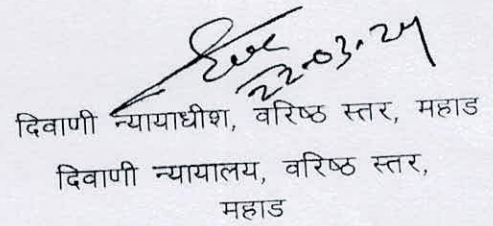 22-03-24
दिवाणी न्यायाधीश, वरिष्ठ स्तर, महाड
दिवाणी न्यायालय, वरिष्ठ स्तर,
महाड